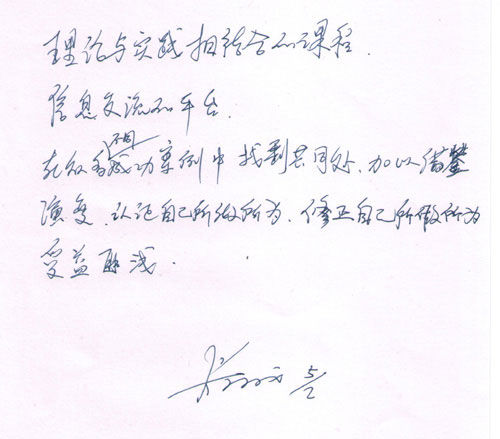 理论与实践相结合的课程.
信息交流的平台.
在众多不同成功案例中找到共同处、加以借鉴
演变、认证自己所做所为、修正自己所做所为
受益匪浅.
5/2